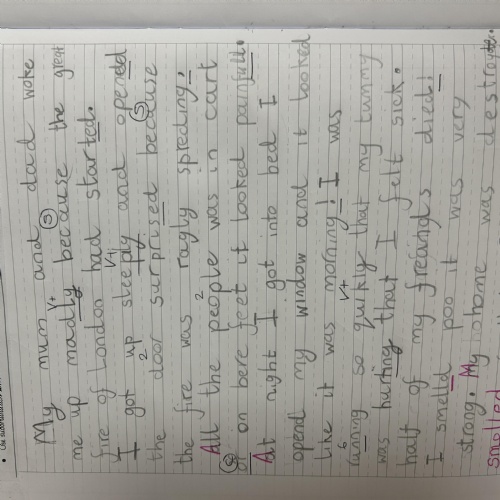 My mum and dad woke
me up madly because the great
fire of London had started.
I got up steeply and opendd
the door surprised because
the fire was ragby spreding,
All the people was in cart
on bere feet it looked painfull.
At night I got into bed I
opend my window and it looked
like it was morning! I was
running so quikly that my tummy
was hurting that I felt sick.
half of my freainds died!
I smelld poo it was very
strong. My home was destroy
smelled